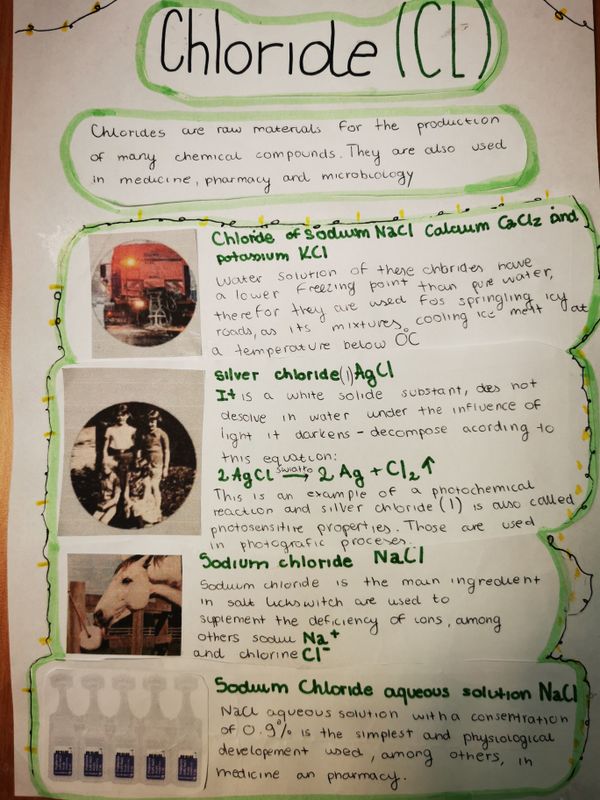 Chloride (Cl)
Chlorides are raw materials for the production
of many chemical compounds. They are also used
in medicine, pharmacy and microbiology
Chloride of sodium NaCl Calcium CaCl2 and
potassium KCl
Water solution of these chlorides have
a lower freezing point than pure water,
therefor they are used for springling icy
roads, as its mixtures, cooling ice melt at
a temperature below 0°C
Silver chloride (1) AgCl
It is a white solide substant, does not
desolve in water under the influence of
light it darkens - decompose acording to
this equation:
2 AgCl światło→ 2 Ag + Cl2↑
This is an example of a photochemical
reaction and silver chloride (1) is also called
photosensitive properties. Those are used
in photografic proceses.
Sodium chloride NaCl
Sodium chloride is the main ingredient
in salt licks witch are used to
suplement the deficiency of ions, among
others sodiu Na+
and chlorine Cl-
Sodium Chloride aqueous solution NaCl
NaCl aqueous solution with a consentration
of 0.9% is the simplest and physiological
developement used, among others, in
medicine an pharmacy.